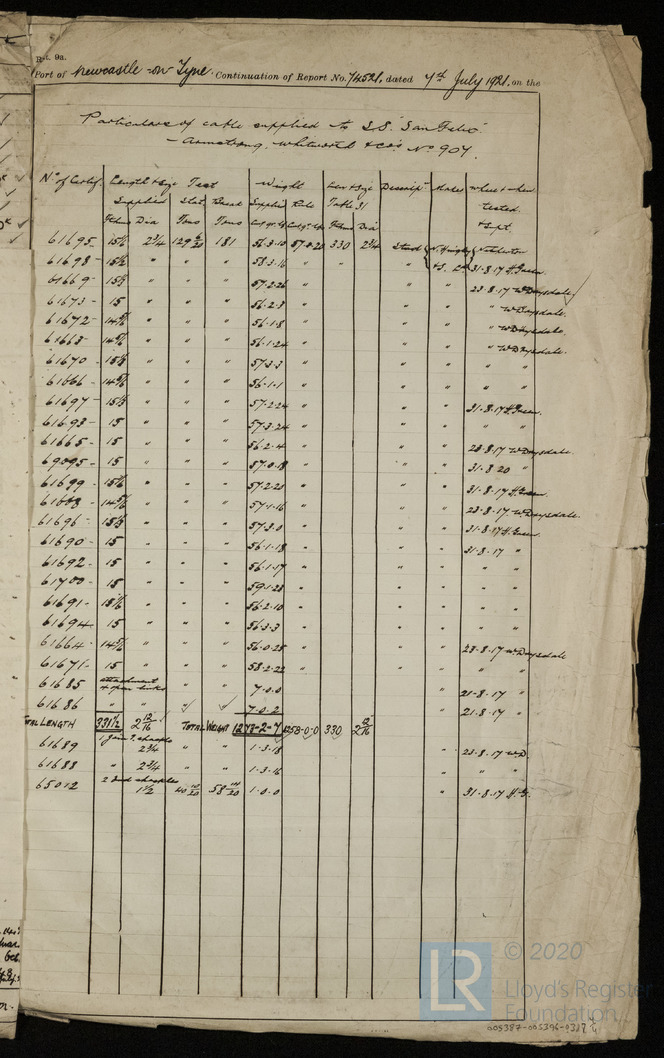 Rpt. 9a.
Port of Newcastle-on-Tyne. Continuation of Report No. 74521, dated 7th July 1921, on the
Particulars of cable supplied to S.S. "San Felix"
Armstrong Whitworth & Co's No 907.
No of Certif. Length & Size Test Weight Len & Size Descript Maker Where & when
Supplied Stat. Break Supplied Rule Table 31 tested
Fthms Dia Tons Tons Fthms Dia & Supt.
61695 15 2 3/4 129 181 56-3-10 57-0-20 330 2 3/4 Stud N. Hingley Netherton
61698 - 15 " " " 58-3-16 " " " " & S. Ld 31-8-17 H. Green
61669 - 15 " " " 57-2-26 " " " 23-8-17 W Drysdale
61673 - 15 " " " 56-2-3 " " " " W Drysdale.
61672 - 14 " " " 56-1-8 " " " " W Drysdale
61663 - 14 " " " 56-1-24 " " " " W Drysdale.
61670 - 15 " " " 57-3-3 " " " " "
61666 - 14 " " " 56-1-1 " " " " "
61697 - 15 " " " 57-2-24 " " " 31-8-17 H. Green.
61693 - 15 " " " 57-3-24 " " " " "
61665 - 15 " " " 56-2-4 " " " 23-8-17 W Drysdale.
69095 - 15 " " " 57-0-18 " " " 31-8-20 "
61699 - 15 " " " 57-2-20 " " " 31-8-17 H. Green
14 " " " 57-1-16 " " " 23-8-17 W Drysdale.
61696 - 15 " " " 57-3-0 " " " 31-8-17 H. Green
61690 - 15 " " " 56-1-18 " " " 31-8-17 "
61692 - 15 " " " 56-1-17 " " " " "
61700 - 15 " " " 59-1-23 " " " " "
61691 - 15 " " " 56-2-10 " " " " "
61694 15 " " " 56-3-3 " " " " "
61664 - 14 " " " 56-0-25 " " " 23-8-17 W Drysdale
61671 - 15 " " " 58-2-22 " " " " "
61685 attachment & spare links " " 7-0-0 " 21-8-17 "
61686 " " " 7-0-2 " 21-8-17 "
TOTAL LENGTH 331 1/2 2 12/16 TOTAL WEIGHT 1273-2-7 1258-0-0 330 2 12/16
61689 1 join. shackle 2 3/4 1-3-18 " 23-8-17 W.D.
61688 " 2 3/4 1-3-16 " " "
65012 2 End shackles 1 1/2 40 10/20 58 14/20 1-0-0 " 31-8-17 H.G.
LR
© 2020
Lloyd's Register
Foundation
005387-005396-0312